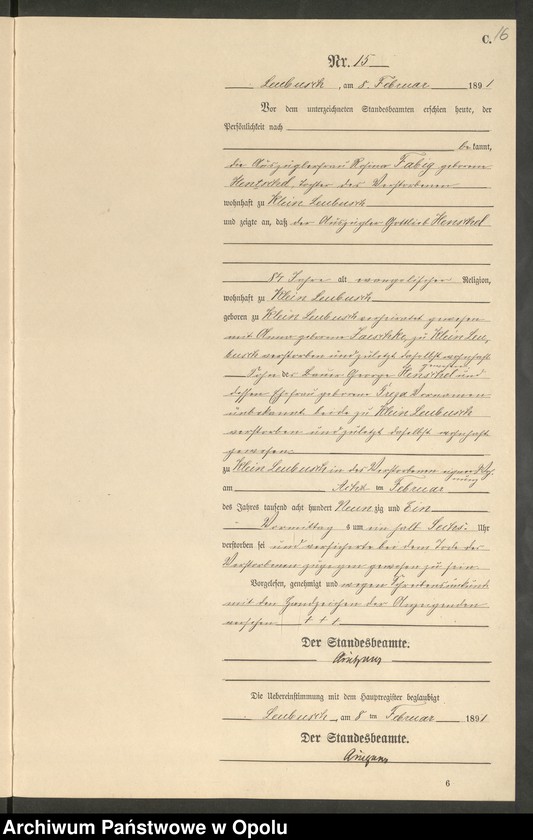 C. 16
Nr. 15
Leubusch, am 8. Februar 1891
Vor dem unterzeichneten Standesbeamten erschien heute, der
Persönlichkeit nach
bekannt,
die Auszüglerfrau Rosina Fabig geborene
Hentschel Tochter des Verstorbenen
wohnhaft zu Klein Leubusch
und zeigte an, daß der Auszügler Gottlieb Henschel
84 Jahre alt evangelischer Religion,
wohnhaft zu Klein Leubusch
geboren zu Klein Leubusch verheirathet gewesen
mit Anna geborene Jaeschke, zu Klein Leu,
busch verstorben und zuletzt daselbst wohnhaft
gewesen
Sohn des Bauer George Henschel und
dessen Ehefrau geborene Vornamen
unbekannt beide zu Klein Leubusch
verstorben und zuletzt daselbst wohnhaft
gewesen
zu Klein Leubusch in des Verstorbenen eigener Woh,
nung
am Achten Februar
des Jahres tausend acht hundert Neunzig und Ein
Vormittags um ein halb Sechs Uhr
verstorben sei und versicherte bei dem Tode des
Verstorbenen zugegen gewesen zu sein
Vorgelesen, genehmigt und wegen Schreibensunkunde
mit den Handzeichen der Anzeigenden
versehen + + +
Der Standesbeamte.
Die Uebereinstimmung mit dem Hauptregister beglaubigt
Leubusch, am 8 ten Februar 1891
Der Standesbeamte.
6
Archiwum Państwowe w Opolu